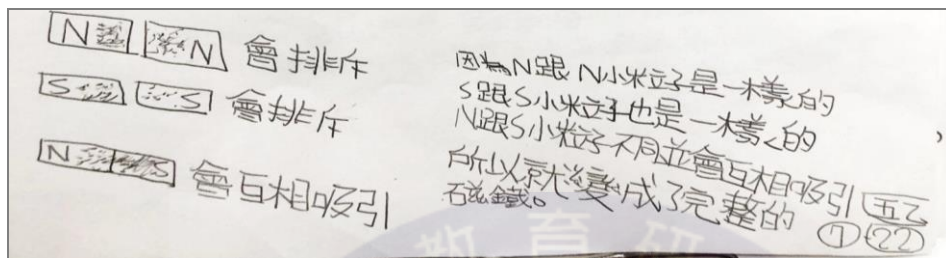 N N 會排斥
S S 會排斥
N S 會互相吸引
因為N跟N小粒子是一樣的
S跟S小粒子也是一樣的
N跟S小粒子不同並會互相吸引
所以就變成了完整的
磁鐵。
五乙
⑦ ㉒
教育研